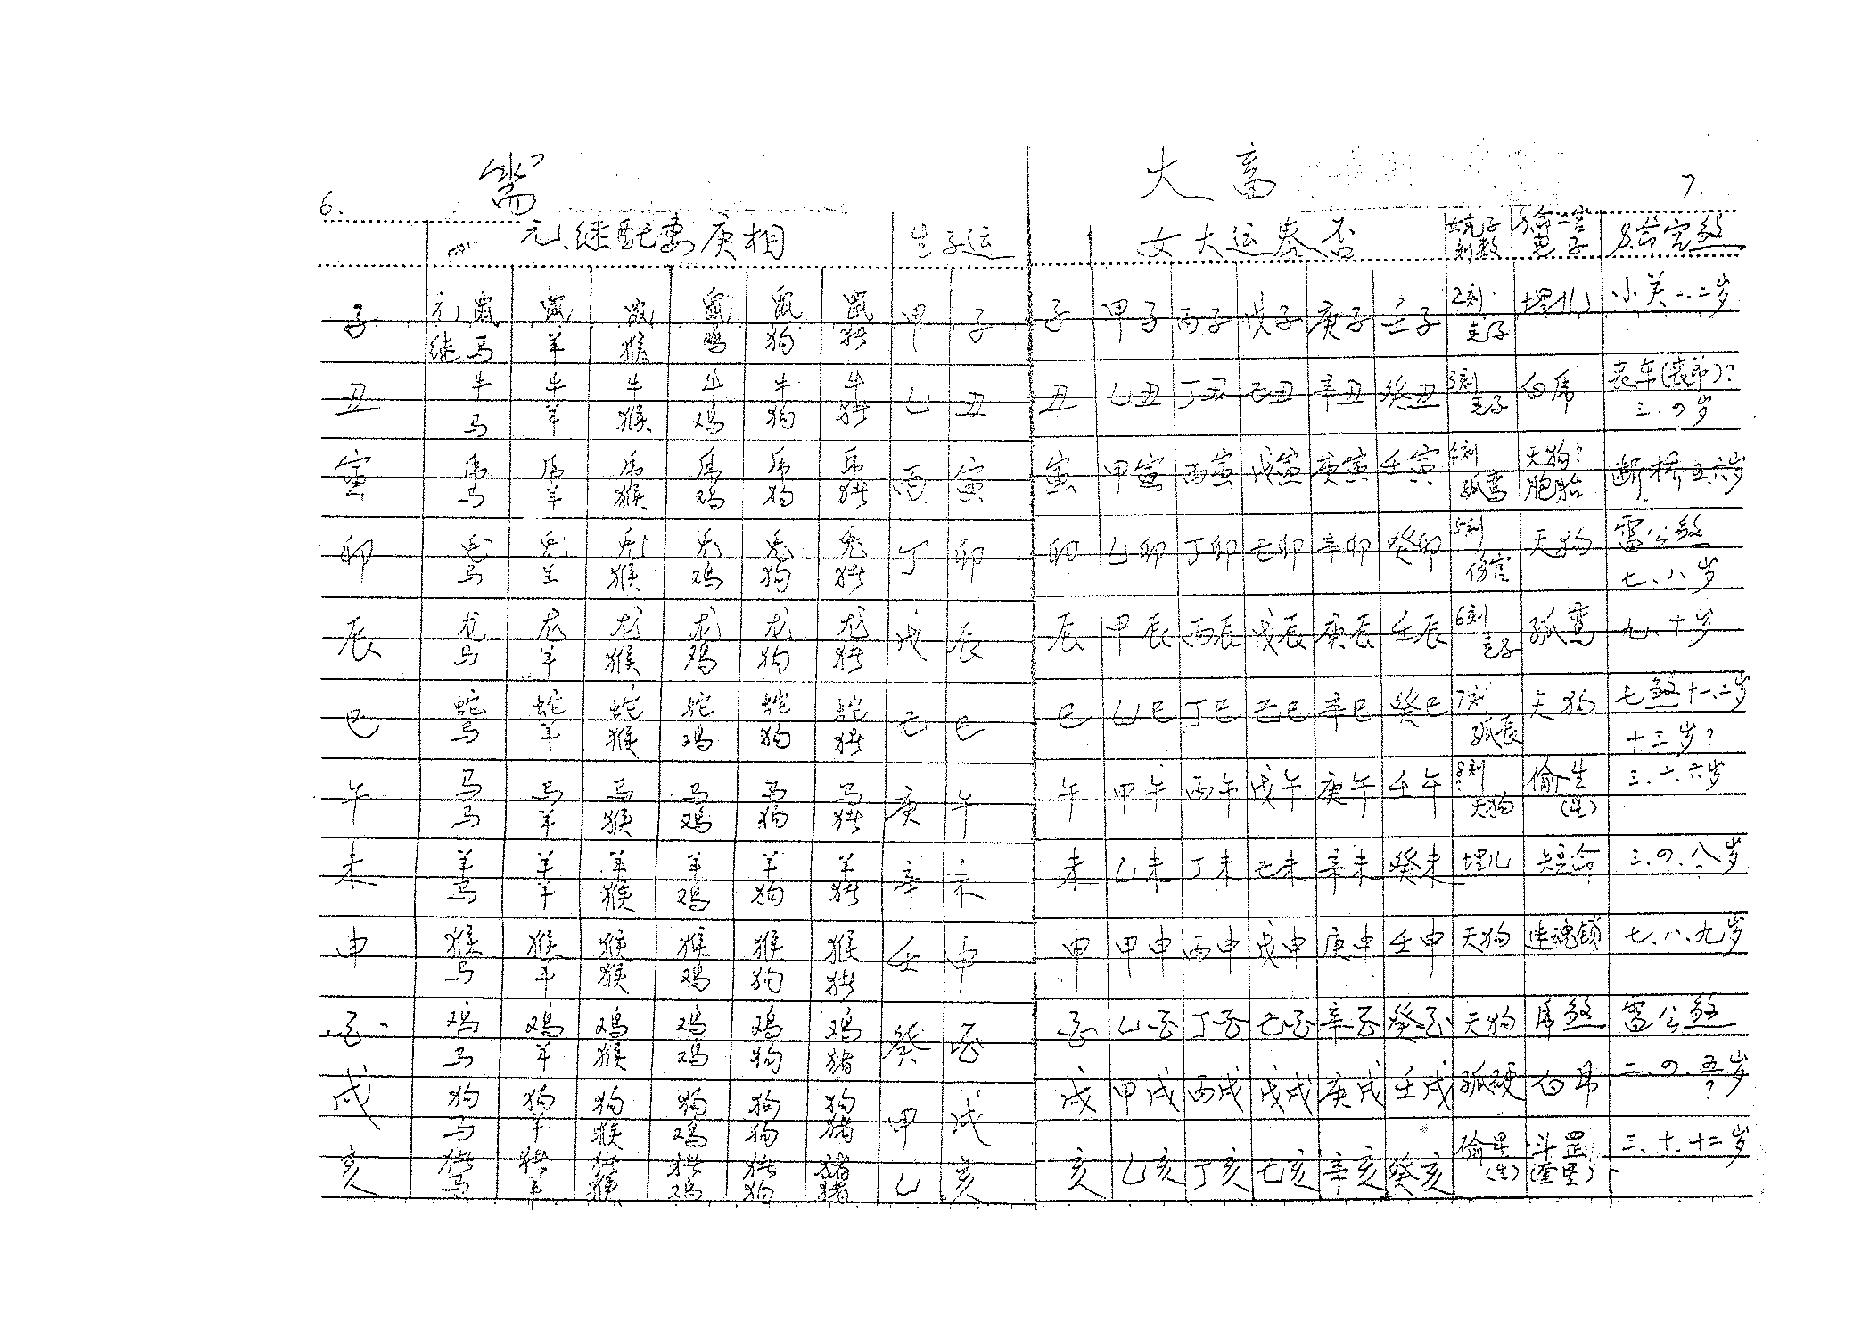 6.
元、继配妻庚相 生子运
子 元鼠 鼠 鼠 鼠 鼠 鼠 甲 子
继马 羊 猴 鸡 狗 猪
丑 牛 牛 牛 牛 牛 牛 乙 丑
马 羊 猴 鸡 狗 猪
寅 虎 虎 虎 虎 虎 虎 丙 寅
马 羊 猴 鸡 狗 猪
卯 兔 兔 兔 兔 兔 兔 丁 卯
马 羊 猴 鸡 狗 猪
辰 龙 龙 龙 龙 龙 龙 戊 辰
马 羊 猴 鸡 狗 猪
巳 蛇 蛇 蛇 蛇 蛇 蛇 己 巳
马 羊 猴 鸡 狗 猪
午 马 马 马 马 马 马 庚 午
马 羊 猴 鸡 狗 猪
未 羊 羊 羊 羊 羊 羊 辛 未
马 羊 猴 鸡 狗 猪
申 猴 猴 猴 猴 猴 猴 壬 申
马 羊 猴 鸡 狗 猪
酉 鸡 鸡 鸡 鸡 鸡 鸡 癸 酉
马 羊 猴 鸡 狗 猪
戌 狗 狗 狗 狗 狗 狗 甲 戌
马 羊 猴 鸡 狗 猪
亥 猪 猪 猪 猪 猪 猪 乙 亥
马 羊 猴 鸡 狗 猪
大畜 7.
女大运泰否
子 甲子 丙子 戊子 庚子 壬子 2刻 埋儿 小关一、二岁
丑 乙丑 丁丑 己丑 辛丑 癸丑 白虎
三、四岁
寅 甲寅 丙寅 戊寅 庚寅 壬寅 天狗? 断桥五六岁
孤鸾 胞胎
卯 乙卯 丁卯 己卯 辛卯 癸卯 5刻 天狗 雷公煞
伤官 七、八岁
辰 甲辰 丙辰 戊辰 庚辰 壬辰 6刻 孤鸾 九、十岁
巳 乙巳 丁巳 己巳 辛巳 癸巳 7刻 天狗 七煞十一、二岁
十三岁?
午 甲午 丙午 戊午 庚午 壬午 8刻 偷生 三、六岁
天狗 (生)
未 乙未 丁未 己未 辛未 癸未 埋儿 短命 三、四、八岁
申 甲申 丙申 戊申 庚申 壬申 天狗 连魂锁 七、八、九岁
酉 乙酉 丁酉 己酉 辛酉 癸酉 天狗 虎煞 雷公煞
戌 甲戌 丙戌 戊戌 庚戌 壬戌 孤硬 白虎 二、四、五岁?
亥 乙亥 丁亥 己亥 辛亥 癸亥 偷生 斗罡 三、十、十二岁
(生)